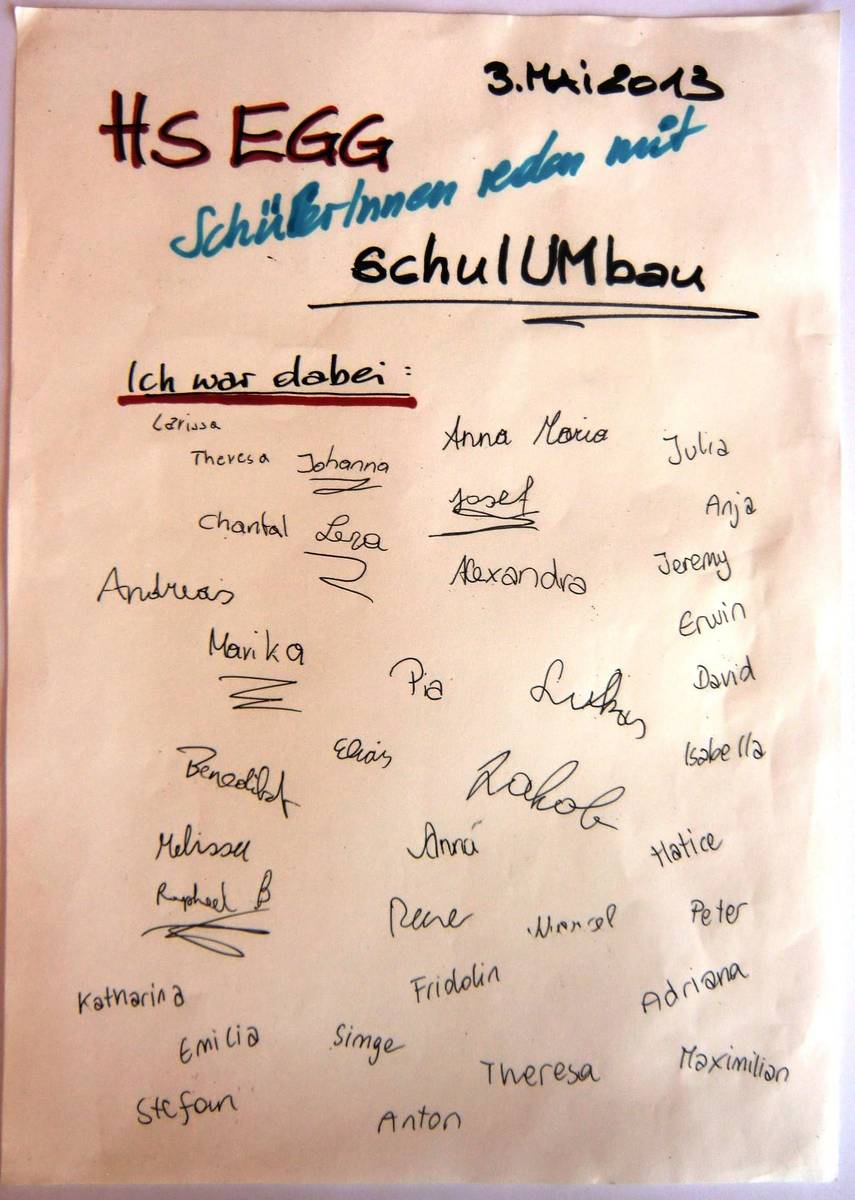 3. MAi 2013
HS EGG
SchülerInnen reden mit
SchulUMbau
Ich war dabei:
Larissa
Anna Maria
Julia
Theresa Johanna
Josef
Anja
Chantal Lena
Alexandra
Jeremy
Andreas
Erwin
Marika
Pia
Lukas
David
Benedikt
Elias
Jakob
Isabella
Melissa
Anna
Hatice
Raphael B
Rene
Marcel
Peter
Katharina
Fridolin
Adriana
Emilia
Simge
Theresa
Maximilian
Stefan
Anton